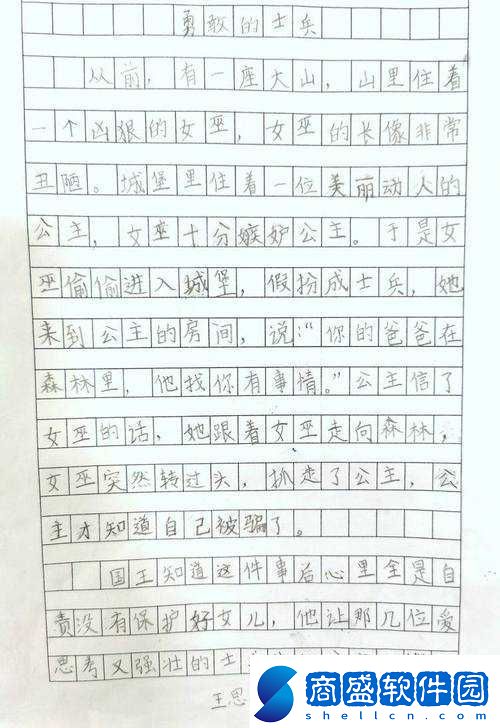 勇敢的士兵
从前，有一座大山，山里住着
一个凶狠的女巫，女巫的长像非常
丑陋。城堡里住着一位美丽动人的
公主，女巫十分嫉妒公主。于是女
巫偷偷进入城堡，假扮成士兵，她
来到公主的房间，说：“你的爸爸在
森林里，他找你有事情。”公主信了
女巫的话，她跟着女巫走向森林，
女巫突然转过头，抓走了公主，公
主才知道自己被骗了。
国王知道这件事后心里全是自
责没有保护好女儿，他让那几位爱
思考又强壮的士
王思
商盛软件园
shellcn.com